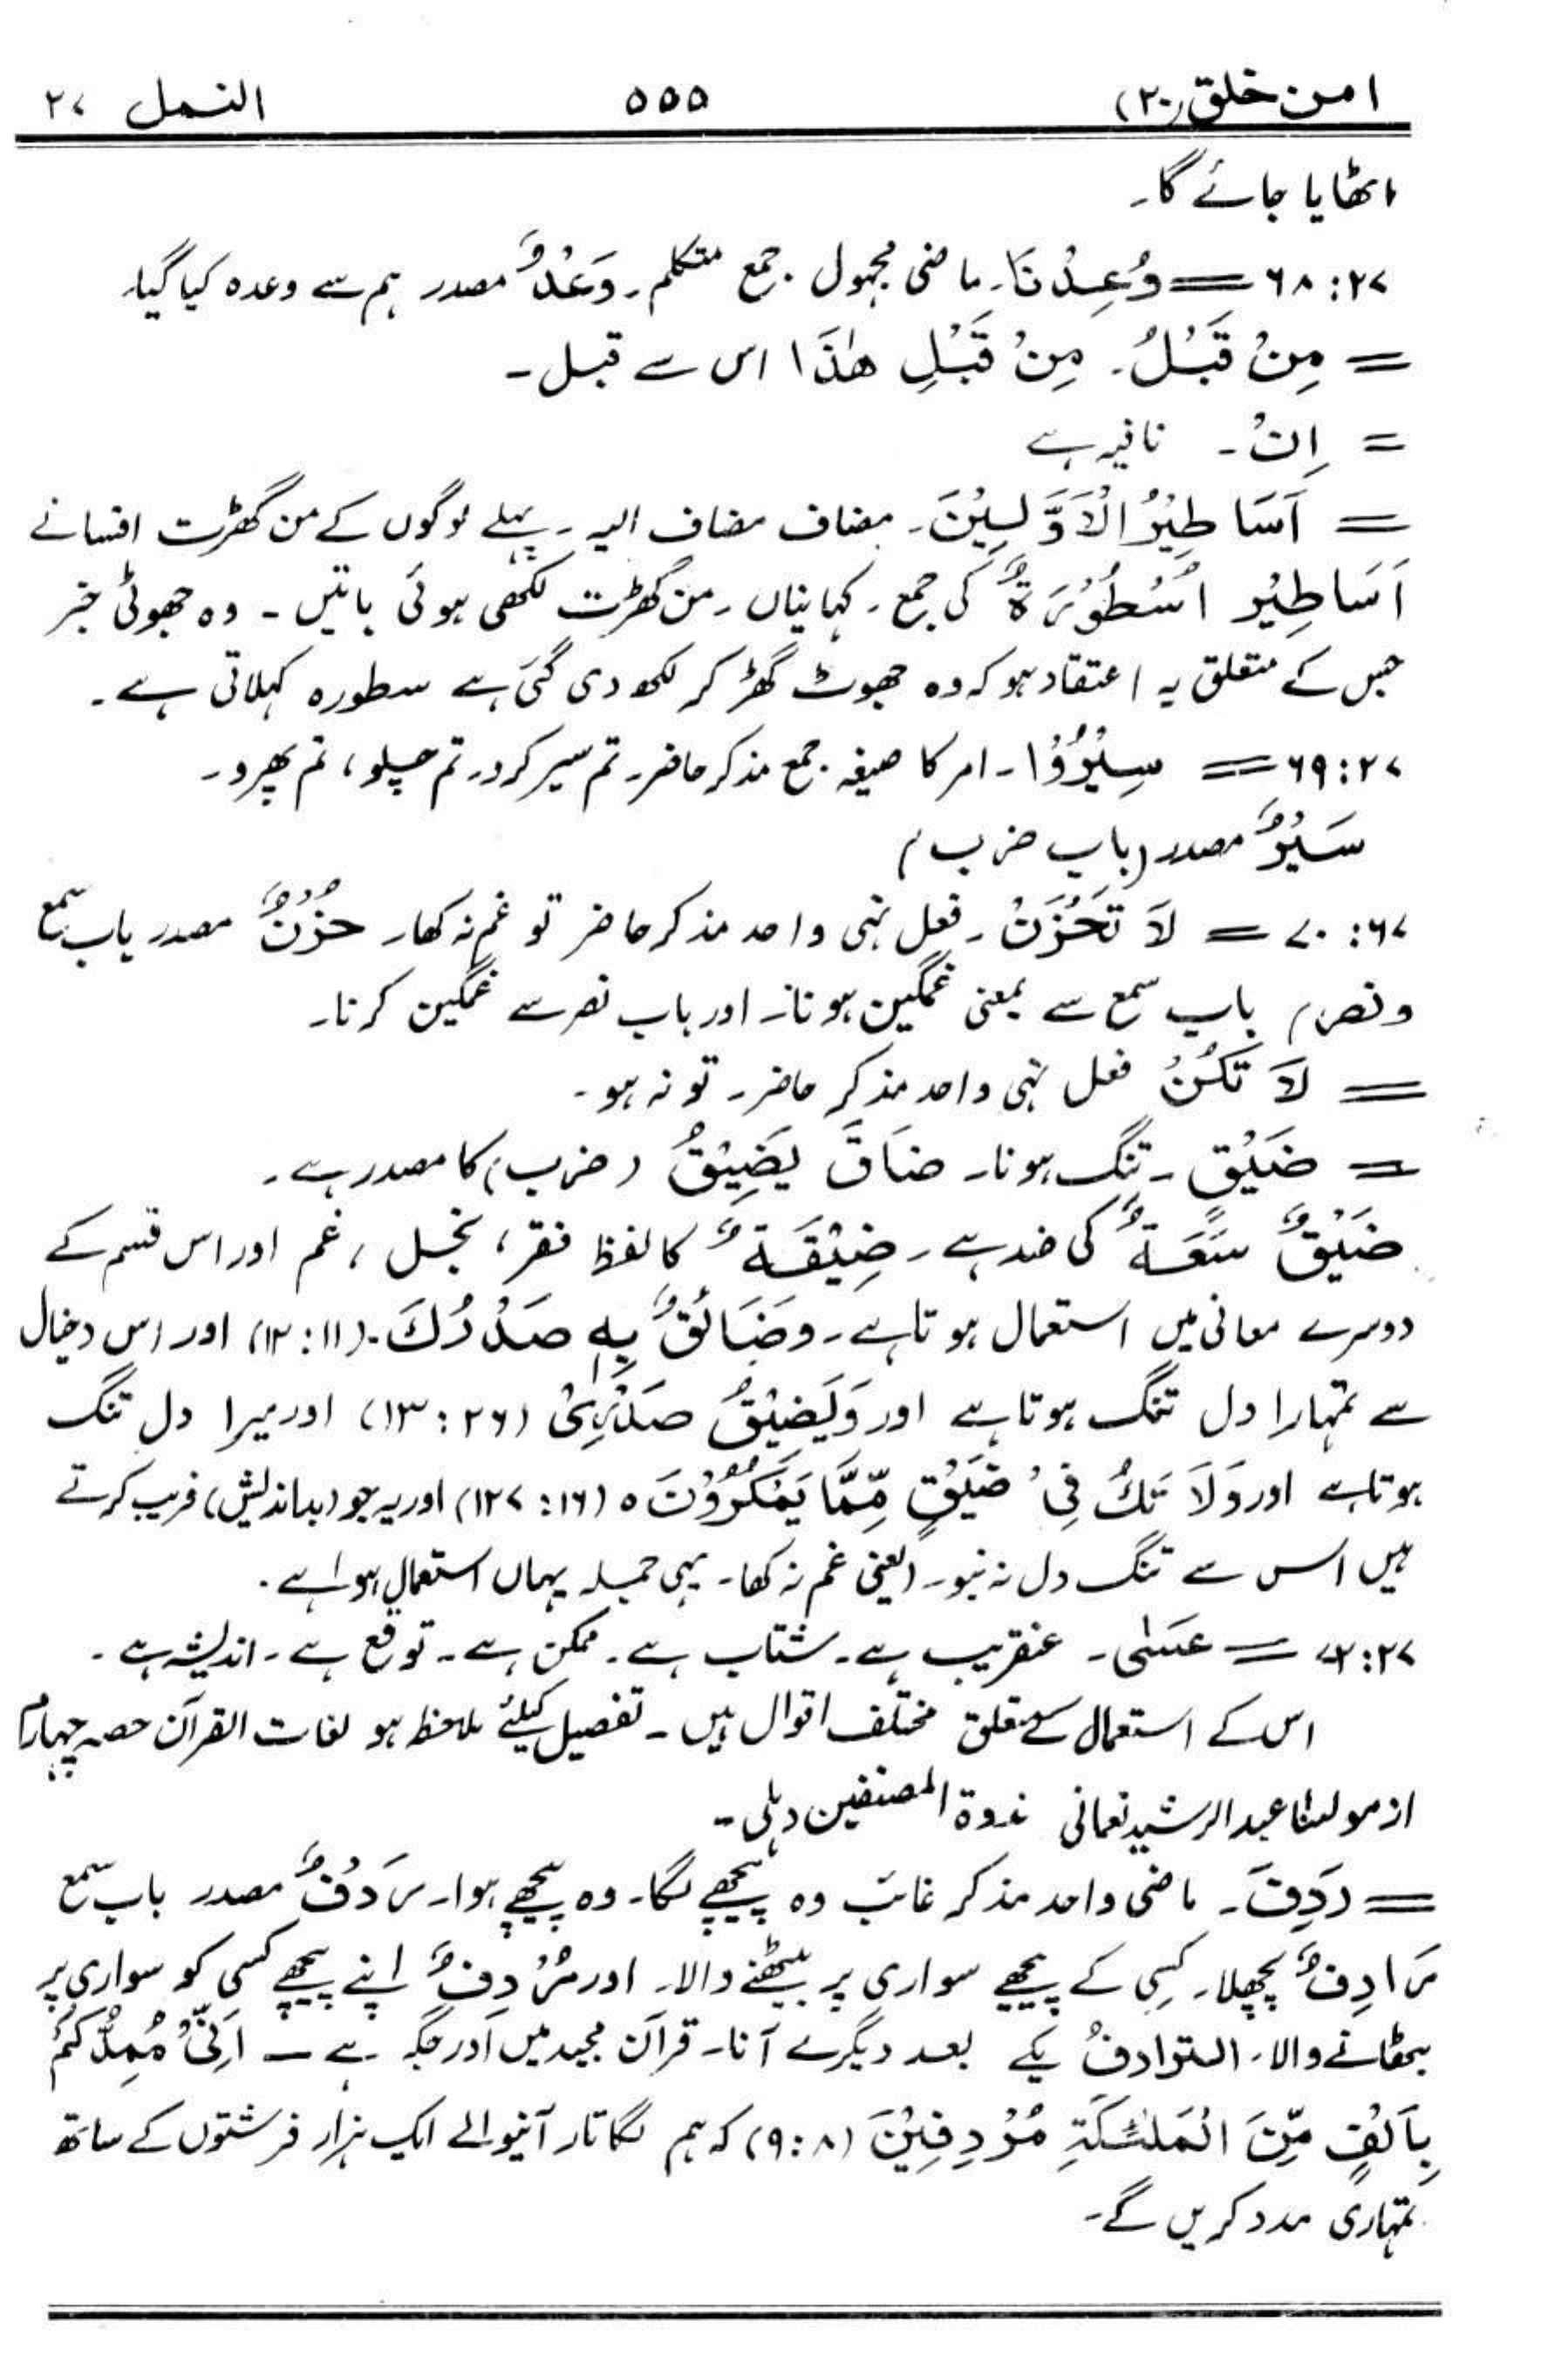 امن خلق (۲۰) ۵۵۵ النمل ۲۷
اٹھایا جائے گا۔
۲۷:۶۸ = وُعِدْنَا۔ ماضی مجہول جمع متکلم۔ وَعْدٌ مصدر ہم سے وعدہ کیا گیا۔
= مِنْ قَبْلُ۔ مِنْ قَبْلِ هٰذَا اس سے قبل۔
= اِنْ۔ نافیہ ہے
= اَسَاطِيْرُ الْاَوَّلِيْنَ۔ مضاف مضاف الیہ۔ پہلے لوگوں کے من گھڑت افسانے
اَسَاطِيْر اُسْطُوْرَةٌ کی جمع۔ کہانیاں۔ من گھڑت لکھی ہوئی باتیں۔ وہ جھوٹی خبر
جس کے متعلق یہ اعتقاد ہو کہ وہ جھوٹ گھڑ کر لکھ دی گئی ہے سطورہ کہلاتی ہے۔
۲۷:۶۹ = سِيْرُوْا۔ امر کا صیغہ جمع مذکر حاضر۔ تم سیر کرو۔ تم چلو، تم پھرو۔
سَيْرٌ مصدر (باب ضرب)
۶۷:۷۰ = لَا تَحْزَنْ۔ فعل نہی واحد مذکر حاضر تو غم نہ کھا۔ حُزْنٌ مصدر باب سمع
ونصر) باب سمع سے بمعنی غمگین ہونا۔ اور باب نصر سے غمگین کرنا۔
= لَا تَكُنْ فعل نہی واحد مذکر حاضر۔ تو نہ ہو۔
= ضَيْقٍ۔ تنگ ہونا۔ ضَاقَ يَضِيْقُ (ضرب) کا مصدر ہے۔
ضَيْقٌ سَعَةٌ کی ضد ہے۔ ضِيْقَةٌ کا لفظ فقر، بخل، غم اور اس قسم کے
دوسرے معانی میں استعمال ہوتا ہے۔ وضَائِقٌ بِهٖ صَدْرُكَ۔ (۱۱:۱۲) اور اس (خیال
سے تمہارا دل تنگ ہوتا ہے اور وَيَضِيْقُ صَدْرِىْ (۲۶:۱۳) اور میرا دل تنگ
ہوتا ہے اور وَلَا تَكُ فِىْ ضَيْقٍ مِّمَّا يَمْكُرُوْنَ ہ (۱۶:۱۲۷) اور یہ جو (بداندیش) فریب کرتے
ہیں اس سے تنگ دل نہ ہو۔ (یعنی غم نہ کھا۔ یہی جملہ یہاں استعمال ہوا ہے۔
۲۷:۷۲ = عَسٰى۔ عنقریب ہے۔ شتاب ہے۔ ممکن ہے۔ توقع ہے۔ اندیشہ ہے۔
اس کے استعمال کے متعلق مختلف اقوال ہیں۔ تفصیل کیلئے ملاحظہ ہو لغات القرآن حصہ چہارم
از مولٰنا عبدالرشید نعمانی ندوۃ المصنفین دہلی۔
= رَدِفَ۔ ماضی واحد مذکر غائب وہ پیچھے لگا۔ وہ پیچھے ہوا۔ رَدْفٌ مصدر باب سمع
رَادِفٌ پچھلا۔ کسی کے پیچھے سواری پر بیٹھنے والا۔ اور مُرْدِفٌ اپنے پیچھے کسی کو سواری پر
بٹھانے والا۔ التوادفُ یکے بعد دیگرے آنا۔ قرآن مجید میں اور جگہ ہے — اَنِّىْ مُمِدُّكُمْ
بِاَلْفٍ مِّنَ الْمَلٰٓئِكَةِ مُرْدِفِيْنَ (۸:۹) کہ ہم لگاتار آنیوالے ایک ہزار فرشتوں کے ساتھ
تمہاری مدد کریں گے۔